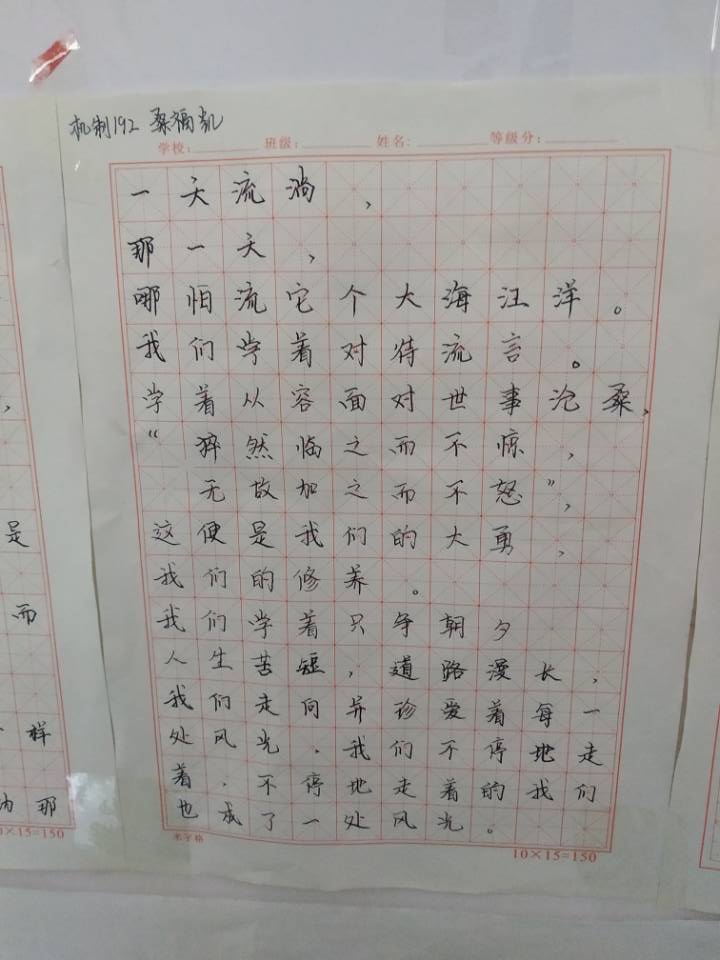 机制192 桑福凯
学校: 班级: 姓名: 等级分:
一天流淌,
那一天,
哪怕流它个大海汪洋。
我们学着对待流言。
学着从容面对世事沧桑,
“猝然临之而不惊,
无故加之而不怒”,
这便是我们的大勇,
我们的修养。
我们学着只争朝夕
人生苦短,道路漫长,
我们走向并珍爱着每一
处风光.我们不停地走
着.不停地走着的我们
也成了一处风光。
米字格
10×15=150
是
而
样
那
0×15=150